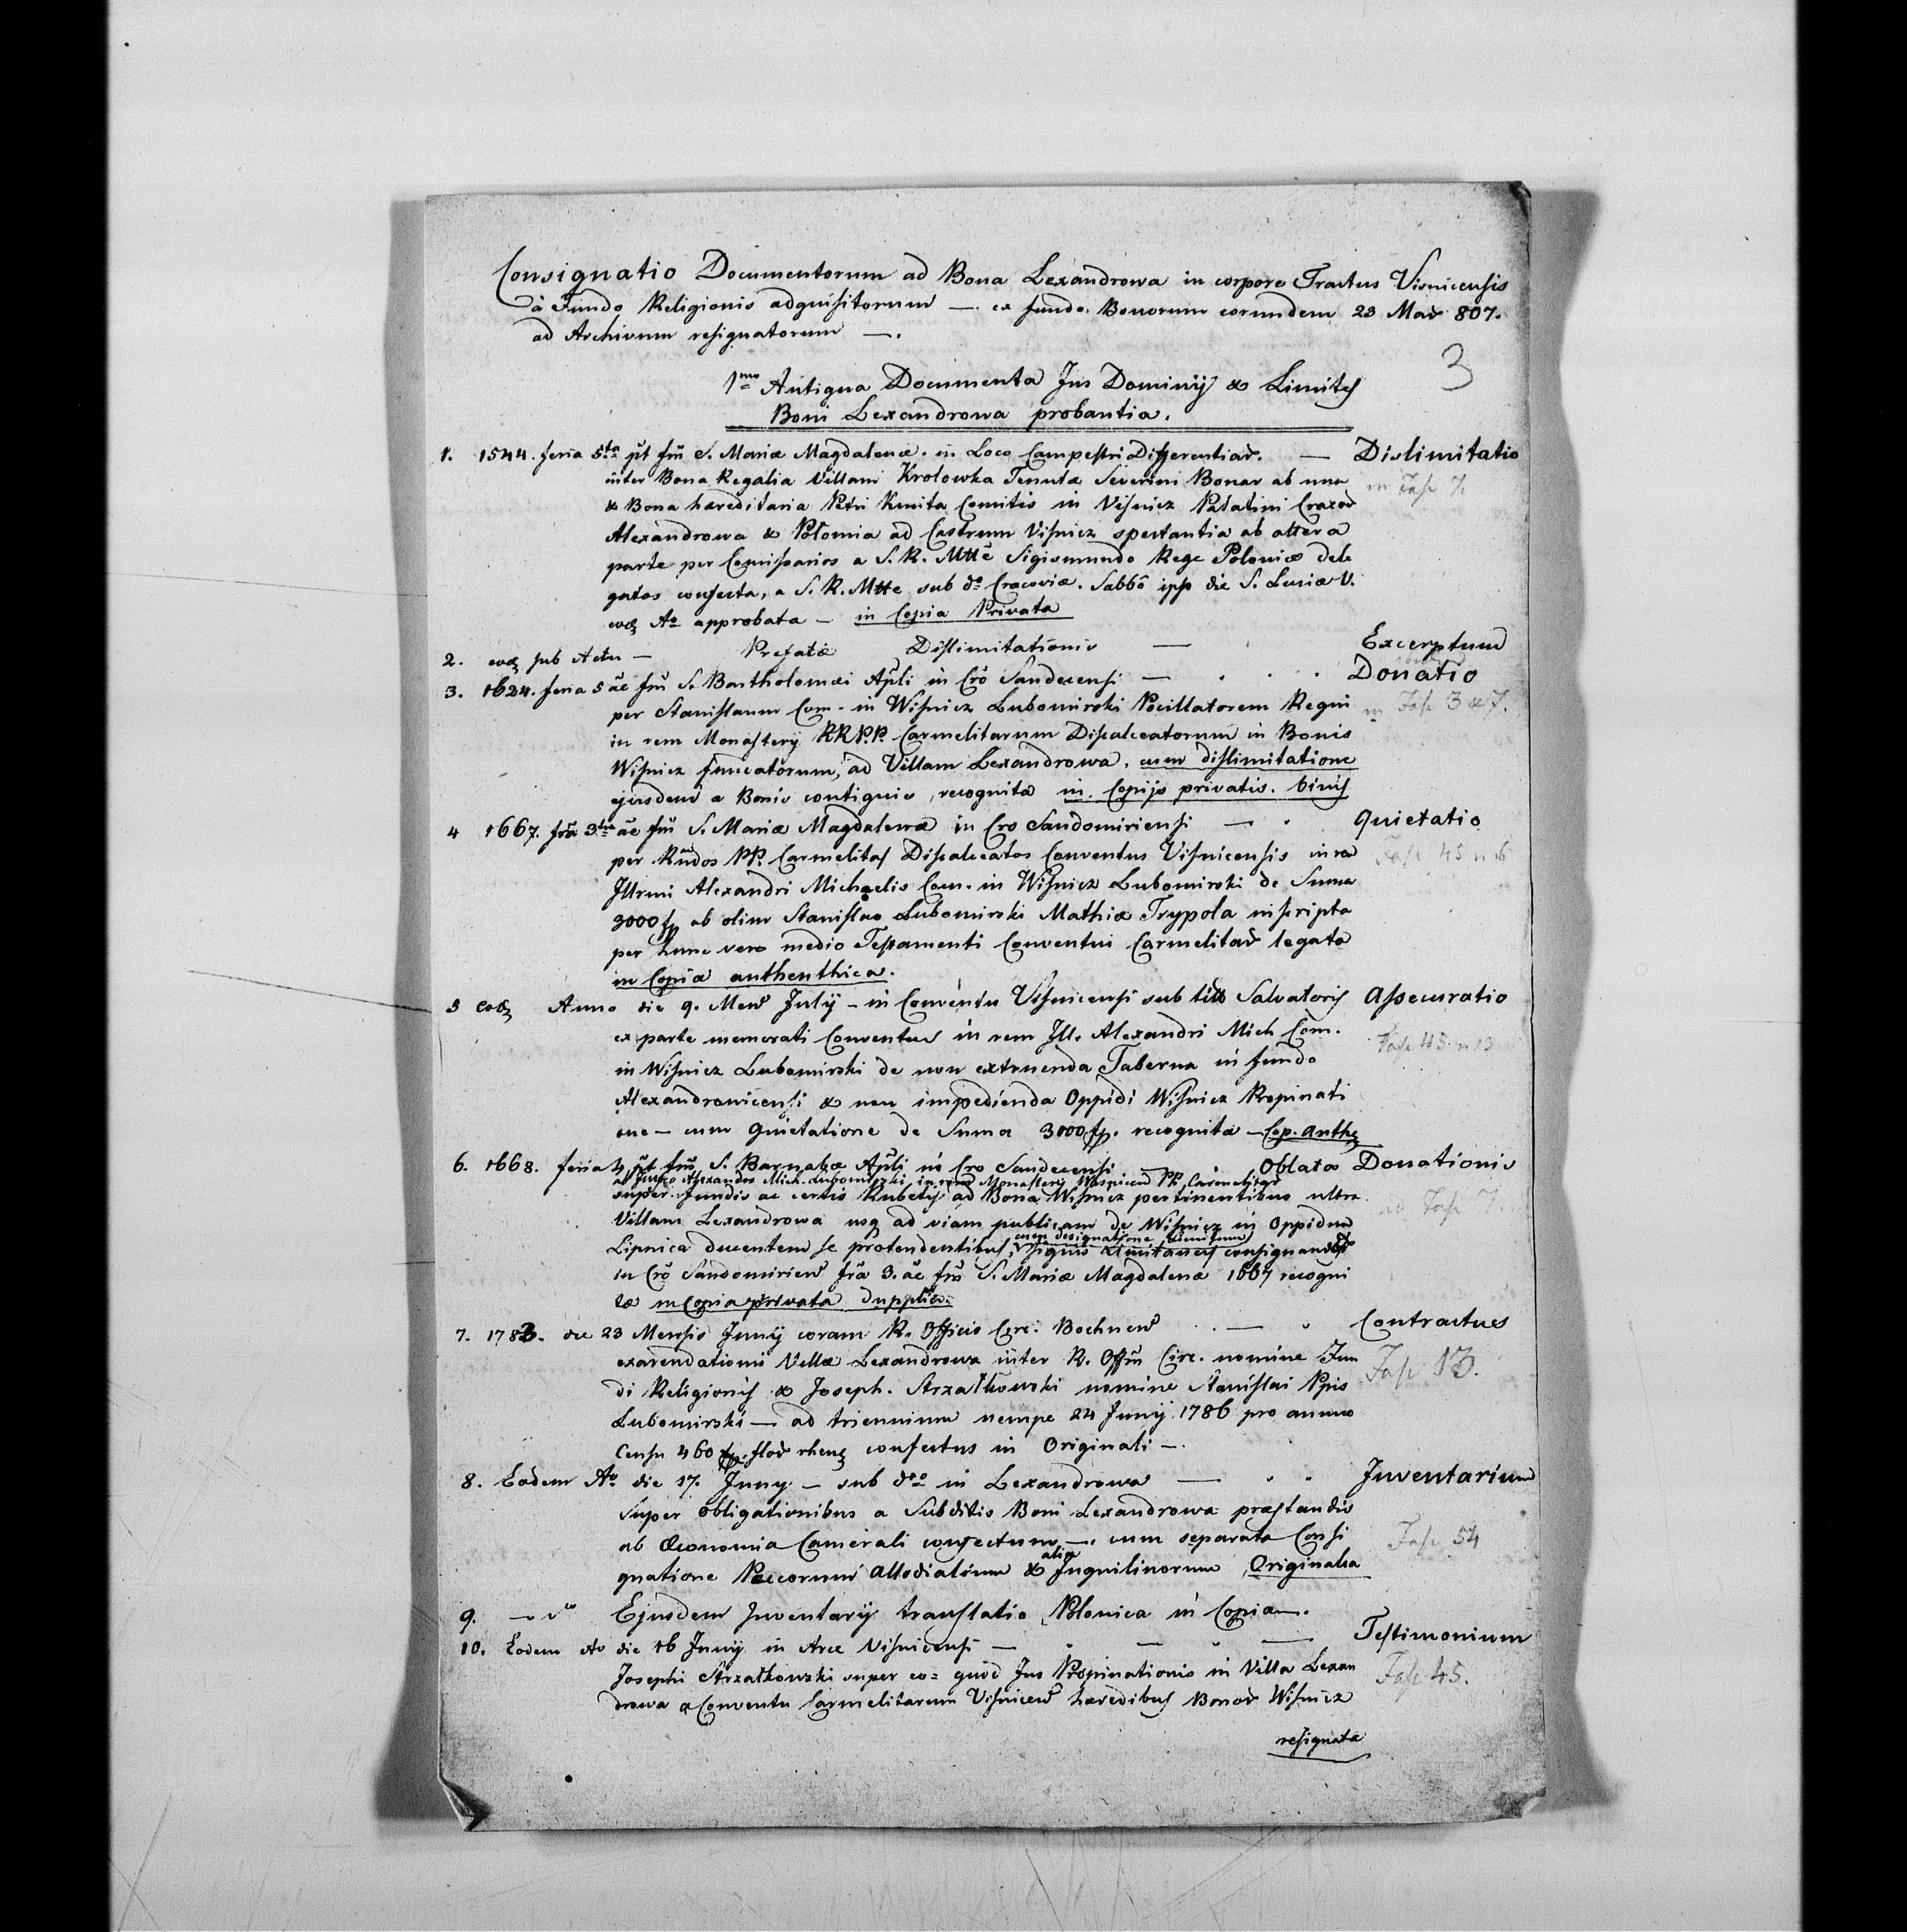 Consignatio Documentorum ad Bona Lexandrowa in corpore Tractus Visnicensis
à Fundo Religionis adquisitorum — ex fundo Bonorum eorundem 23 Mar 807.
ad Archivum resignatorum —.
3
1mo Antiqua Documenta Jus Dominij & Limites
Boni Lexandrowa probantia.
1. 1544. feria 5ta pt fm S. Mariæ Magdalenæ. in Loco Campestri Differentiar. — Dislimitatio
inter Bona Regalia Villam Krolowka Tenutæ Severini Bonar ab una in Fasc 7.
& Bona hæreditaria Petri Kmita Comitis in Visnicz Palatini Cracov
Alexandrowa & Połomia ad Castrum Visnicz spectantia ab altera
parte per Comissarios a S. R. Mtte Sigismundo Rege Poloniæ dele
gatos confecta, a S. R. Mtte sub do Cracoviæ. Sabbo ipso die S. Luciæ V.
eod Ao approbata — in Copia Privata
2. eod sub Actu — Prefatæ Dislimitationis — Excerptum
3. 1624. feria 5 ac fm S. Bartholomæi Apli in Cro Sandecensi — Donatio
per Stanislaum Com. in Wisnicz Lubomirski Pocillatorem Regni in Fasc 3 & 7.
in rem Monastery RRPP. Carmelitarum Discalceatorum in Bonis
Wisnicz funcatorum, ad Villam Lexandrowa, cum dislimitatione
ejusdem a Bonis contiguis, recognita in Copijs privatis. binis
4 1667. fra 3tia ac fm S. Mariæ Magdalenæ in Cro Sandomiriensi — Quietatio
per Rndos PP. Carmelitas Discalceatos Conventus Visnicensis in rem Fasc 45 n 6
Jllrmi Alexandri Michaelis Com. in Wisnicz Lubomirski de Suma
3000 fp ab olim Stanislao Lubomirski Mathiæ Trypola inscripta
per hunc vero medio Testamenti Conventui Carmelitar legata
in Copia anthenthica.
5 eod Anno die 9. Mens July — in Conventu Visnicensi sub titlo Salvatoris Assecuratio
ex parte memorati Conventus in rem Jll. Alexandri Mich Com. Fasc 45. n 13
in Wisnicz Lubomirski de non extruenda Taberna in fundo
Alexandrowicensi & non impedienda Oppidi Wisnicz Propinati
one — cum Quietatione de Suma 3000 fp. recognita — Cop. Anthe
6. 1668. feria 4 pt fm S. Barnabæ Apli in Cro Sandecensi — Oblata Donationis
ab Jllmo Alexandro Mich. Lubomirski in rem Monastery Wisnicen PP. Carmelitar
super fundis ac certis Rubetis ad Bona Wisnicz pertinentibus ultra ad Fasc 7.
Villam Lexandrowa usq ad viam publicam de Wisnicz in Oppidum
cum designatione limitum
Lipnica ducentem se protendentibus, signis limitaneis consignandis
in Cro Sandomirien fra 3. ac fm S. Mariæ Magdalenæ 1667 recogni
tæ in Copia privata dupplici.
7. 1783. die 23 Mensis Juny coram R. Officio Circ. Bochnen — Contractus
exarendationis Villæ Lexandrowa inter R. Offm Circ. nomine Fun Fasc 13.
di Religionis & Joseph. Strzałkowski nomine Stanislai Ppis
Lubomirski — ad triennium nempe 24 Junij 1786 pro annuo
Censu 460 fp. flor rhen confectus in Originali —.
8. Eodem Ao die 17. Juny — sub dto in Lexandrowa — Inventarium
super obligationibus a Subditis Boni Lexandrowa præstandis
ab Œconomia Camerali confectum —. cum separata Consi Fasc 54
alia
gnatione Pecorum Allodialium & Inquilinorum Originalia
9. Ejusdem Inventarij translatio Polonica in Copia —.
10. Eodem Ao die 16 Junij in Arce Visnicensi — Testimonium
Josephi Strzałkowski super eo = quod Jus Propinationis in Villa Lexan Fasc 45.
drowa a Conventu Carmelitarum Visnicen hæredibus Bonor Wisnicz
resignata